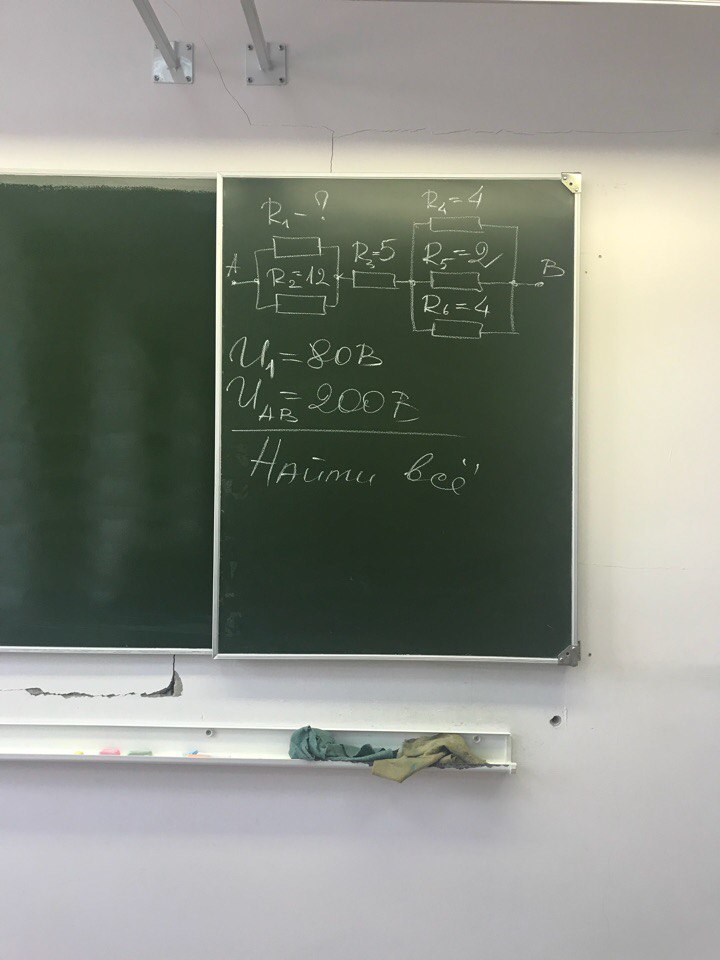 R₁ - ?
R₄ = 4
A
R₂ = 12
R₃ = 5
R₅ = 2
B
R₆ = 4
U₁ = 80В
U_AB = 200В
Найти "всё"